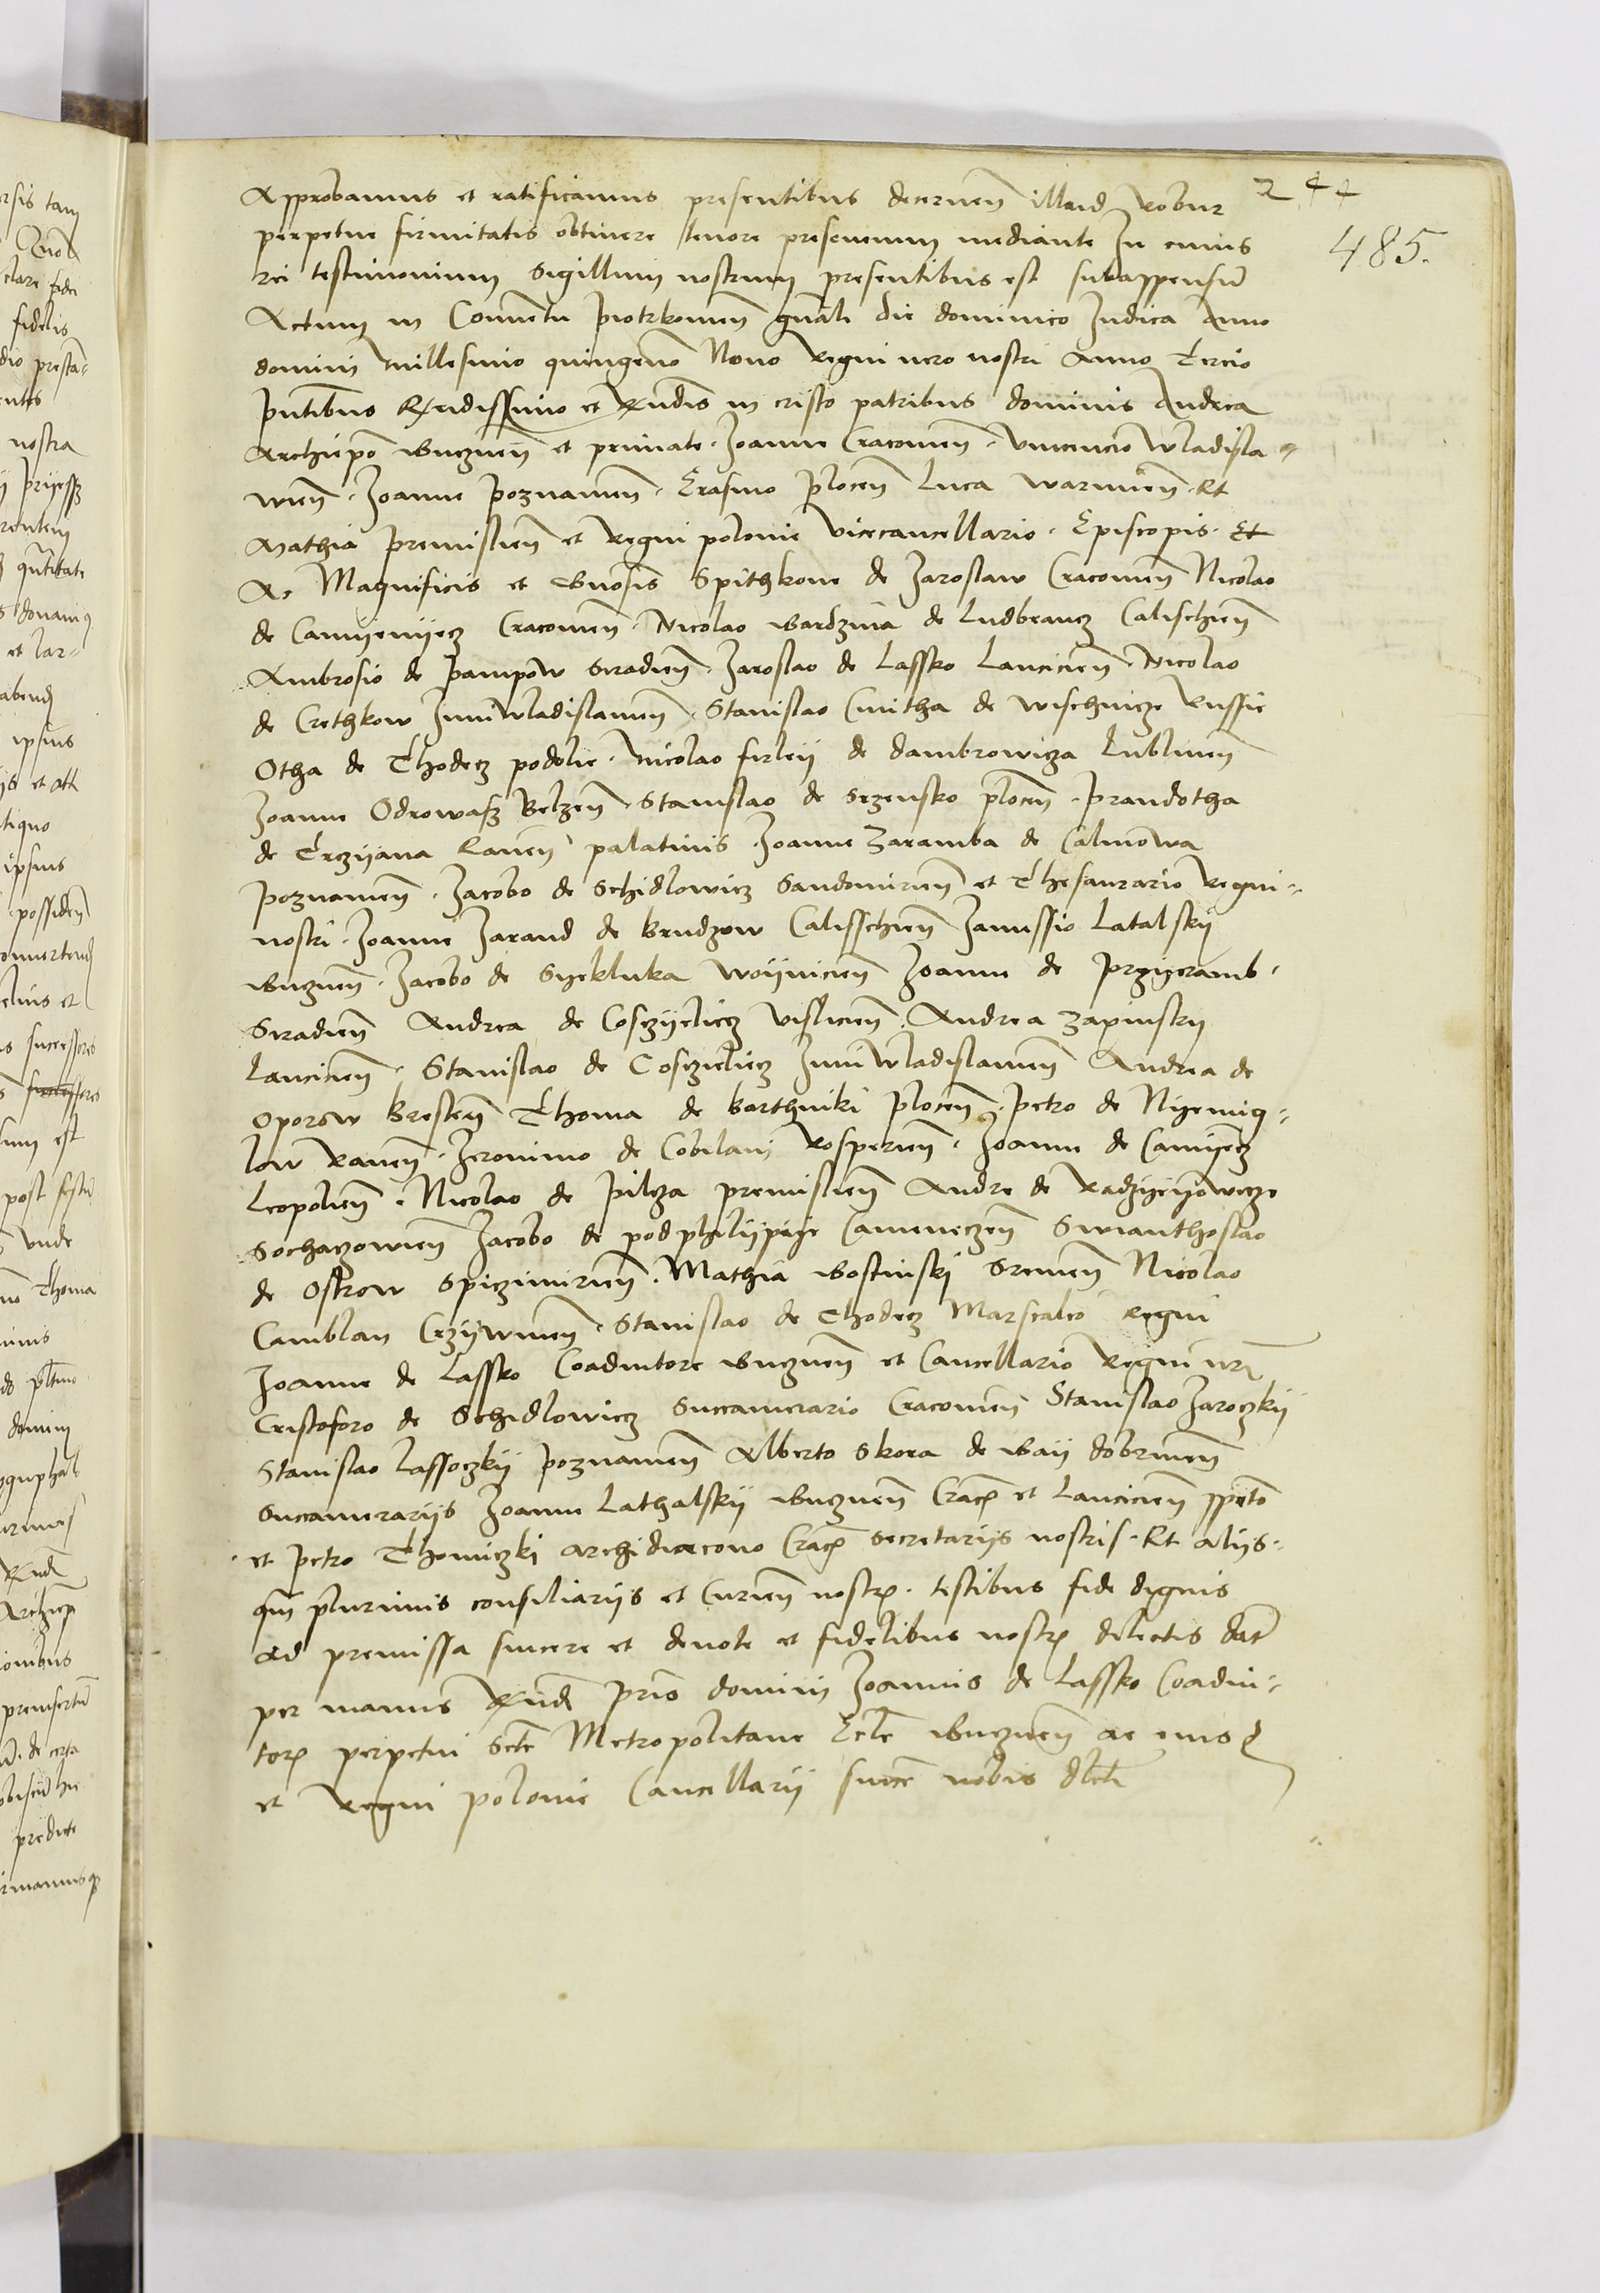 244
485.
Approbamus et ratificamus presentibus decernen illaid Robur
perpetue firmitatis obtinere tenore presencium mediante In cuius
rei testimonium Sigillum nostrum presentibus est subappensum
Actum in Conventu piotrkovien gnali die dominico Iudica Anno
domini millesimo quingeno Nono regni vero nostri Anno Tercio
pntibus Rendissimo et Rndis in cristo patribus dominis Andrea
Archiepo Gneznen et primate. Joanne Cracovien. vincencio wladisla
wien. Joanne poznanien. Erasmo plocen Luca warmien. Et
Mathia premislien et Regni polonie Vicecancellario. Episcopis. Et
Ac Magnificis et Gnosis Spithkone de Jaroslaw Cracovien Nicolao
de Camyenyecz Cracovien. Nicolao Gardzina de Ludbrancz Calischien
Ambrosio de pampow Siradien. Jaroslao de Lassko Lancicien. Nicolao
de Crethkow Juniwladislavien. Stanislao Cmitha de wischnicze Russie
Otha de Chodecz podolie. Nicolao firley de dambrowicza Lublinen
Joanne Odrowasz Belzen. Stanislao de Srzensko plocen. prandotha
de Trczyana Raven palatinis. Joanne Zaramba de Calinowa
poznanien. Jacobo de Schidlowicz Sandomirien et Thesaurario Regni
nostri. Joanne Jarand de Brudzow Calisschien Janussio Latalsky
Gneznen. Jacobo de Syekluka woynicien Joanne de przyeramb.
Siradien Andrea de Cosczyelecz vislicien. Andrea Zapinsky
Lancicien. Stanislao de Cosczielecz Juniwladislavien Andrea de
Oporow Bresten Thoma de Barthniki plocen. petro de Nyemig
low Raven. Jeronimo de Cobilani Rosperien. Joanne de Camyenecz
Leopolien. Nicolao de pilcza premislien Andre de Radzyeyowicze
Sochaczowien Jacobo de podphilypye Cameneczen Swianthoslao
de Ostrow Spiczimirien. Mathia Gostinski Sremen Nicolao
Camblan Crzywinen. Stanislao de Chodecz Marscalco regni
Joanne de Lassko Coadiutore Gneznen et Cancellario Regni nri
Cristoforo de Schidlowicz Succamerario Cracovien Stanislao Jaroczky
Stanislao Lassoczky poznanien Alberto Skora de Gay dobrinen
Succamerariis Joanne Lathalsky Gneznen Crac et Lancicien ppto
et petro Thomiczki archidiacono Crac Secretariis nostris. Et aliis
qm plurimis consiliariis et Curien nostr. testibus fide dignis
ad premissa sincere et devote et fidelibus nostr dilectis dat
per manus Rnd pris domini Joannis de Lassko Coadiu
tor perpetui Scte Metropolitane Ecle Gneznen ac eiusd
et Regni polonie Cancellarii sincere nobis dlcti